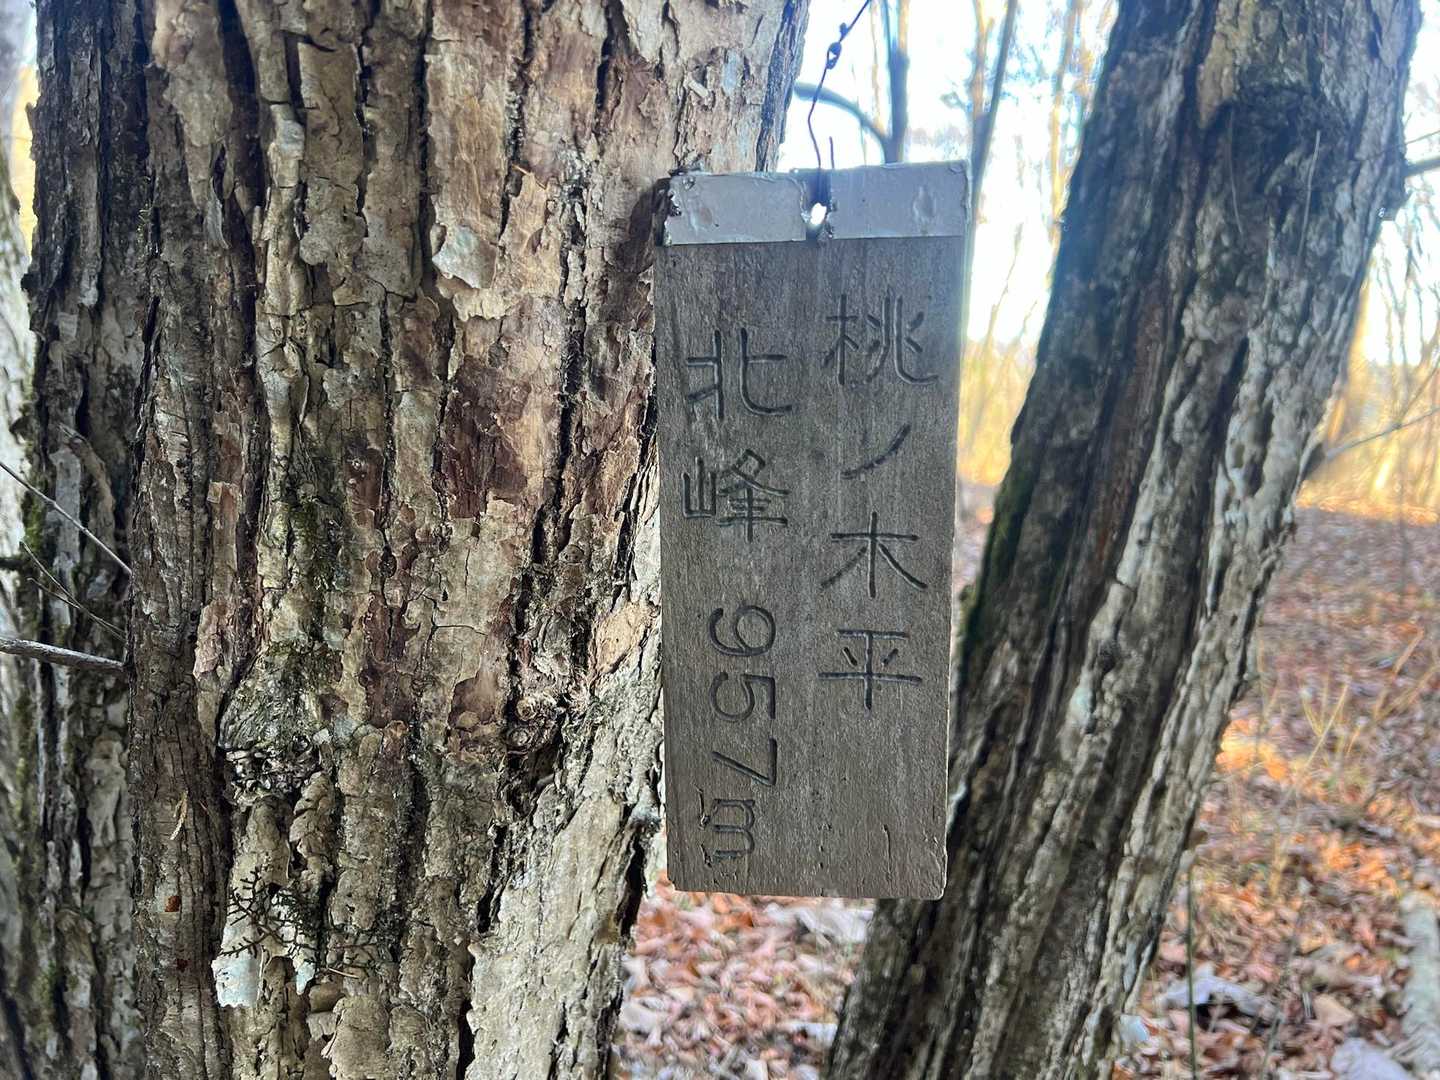 桃ノ木平
北峰 957m